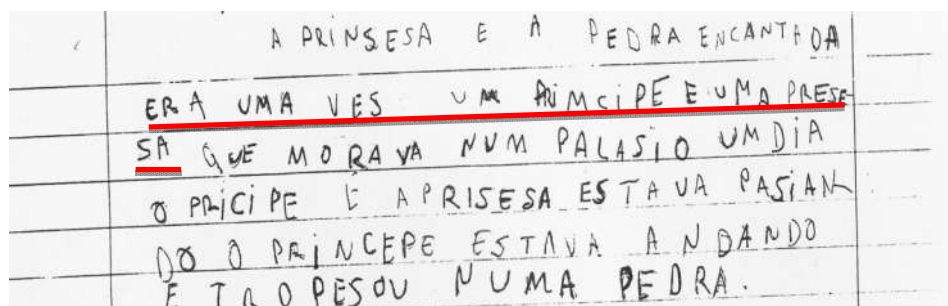 A PRINSESA E A PEDRA ENCANTADA
ERA UMA VES UM PRIMCIPE E UMA PRESE
SA QUE MORAVA NUM PALASIO UM DIA
O PRICIPE E A PRISESA ESTAVA PASIAN
DO O PRINCEPE ESTAVA ANDANDO
E TROPESOU NUMA PEDRA.